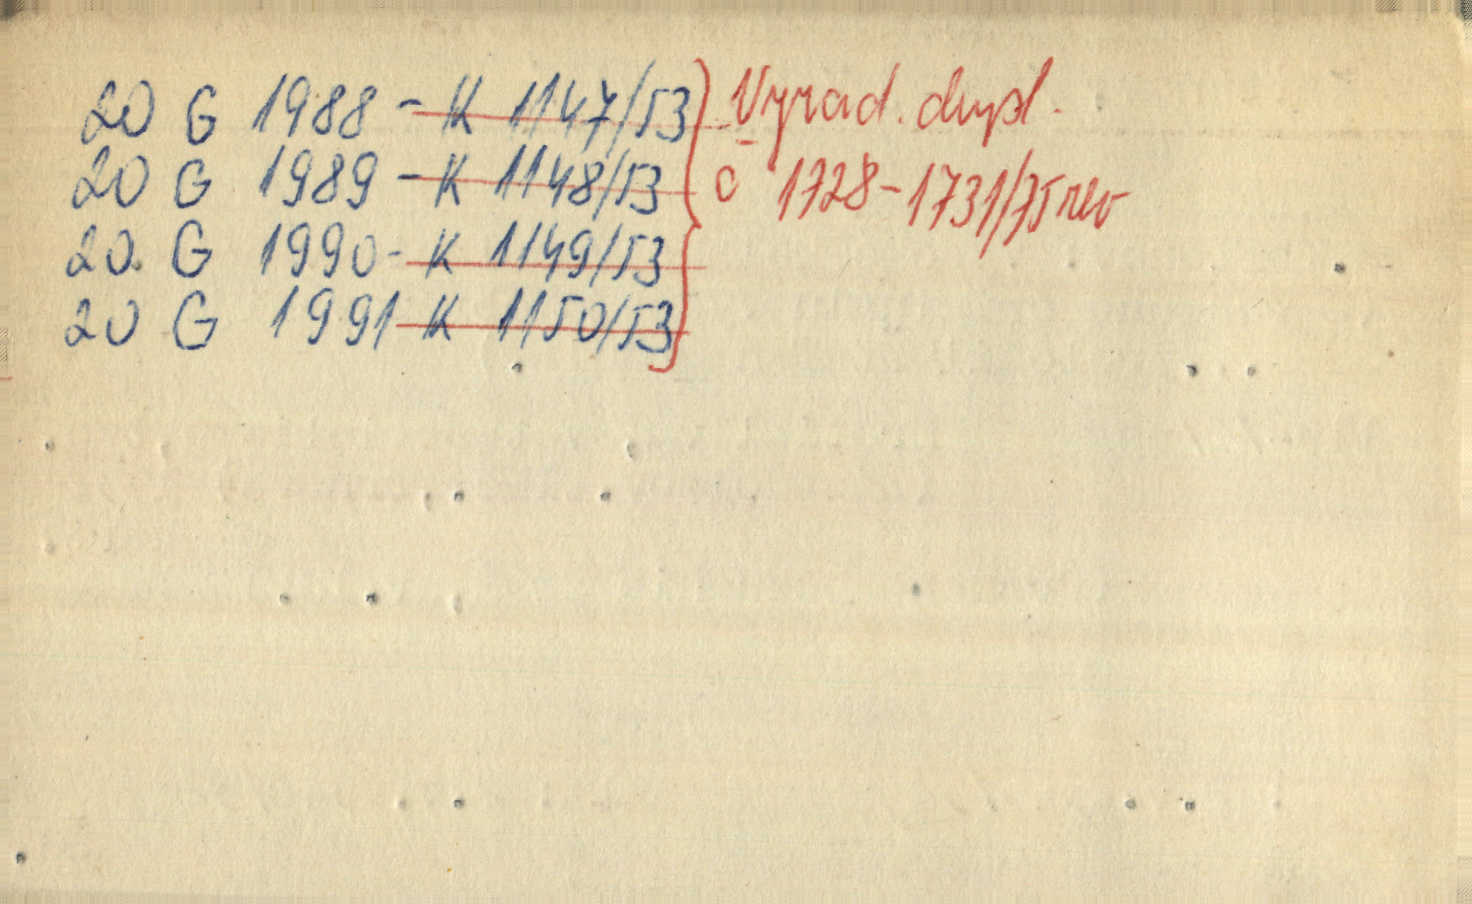 20 G 1988 - K 1147/53 Vyrad. dupl.
20 G 1989 - K 1148/53 č 1728-1731/75 rev
20. G 1990 - K 1149/53
20 G 1991 K 1150/53